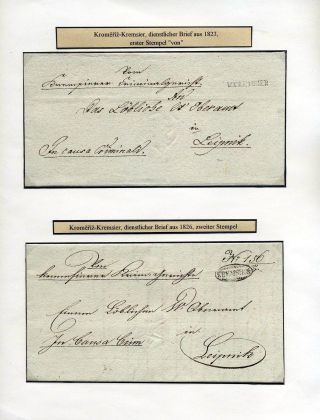 Kroměříž-Kremsier, dienstlicher Brief aus 1823,
erster Stempel "von"
Vom
Kremsierer Criminalgericht
An
Das Löbliche Oberamt
in
Leipnik
In causa Criminali
Kroměříž-Kremsier, dienstlicher Brief aus 1826, zweiter Stempel
Nr 156
Vom
KREMSIER
Einem Löblichen Oberamt
in
In Causa Crim
Leipnik